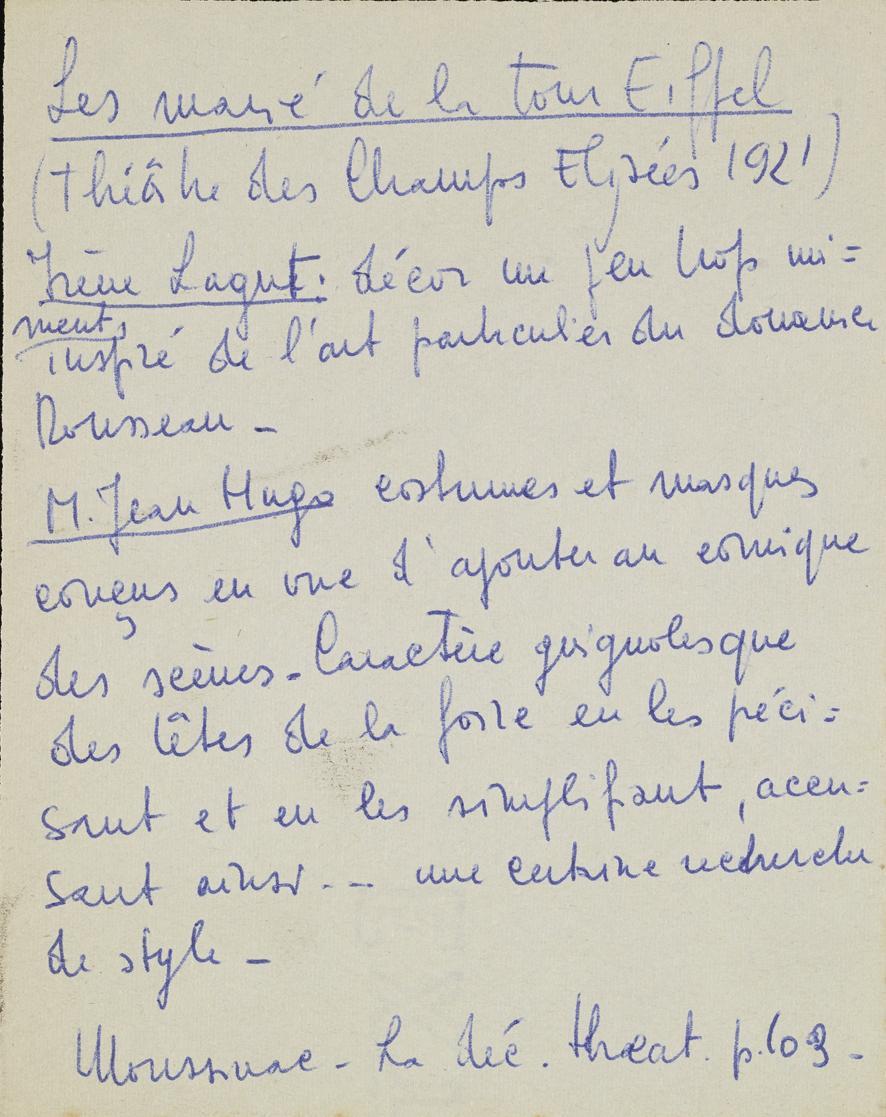 Les marié de la tour Eiffel
(Théâtre des Champs Elysées 1921)
Irène Lagut: décor un peu trop mi=
ments,
inspiré de l'art particulier du douanier
Rousseau -
M. Jean Hugo costumes et masques
conçus en vue d'ajouter au comique
des scènes - Caractère guignolesque
des têtes de la foire en les péci=
sant et en les simplifiant, accu=
sant ainsi -- une certaine recherche
de style -
Moussinac - La déc. théat. p. 103 -